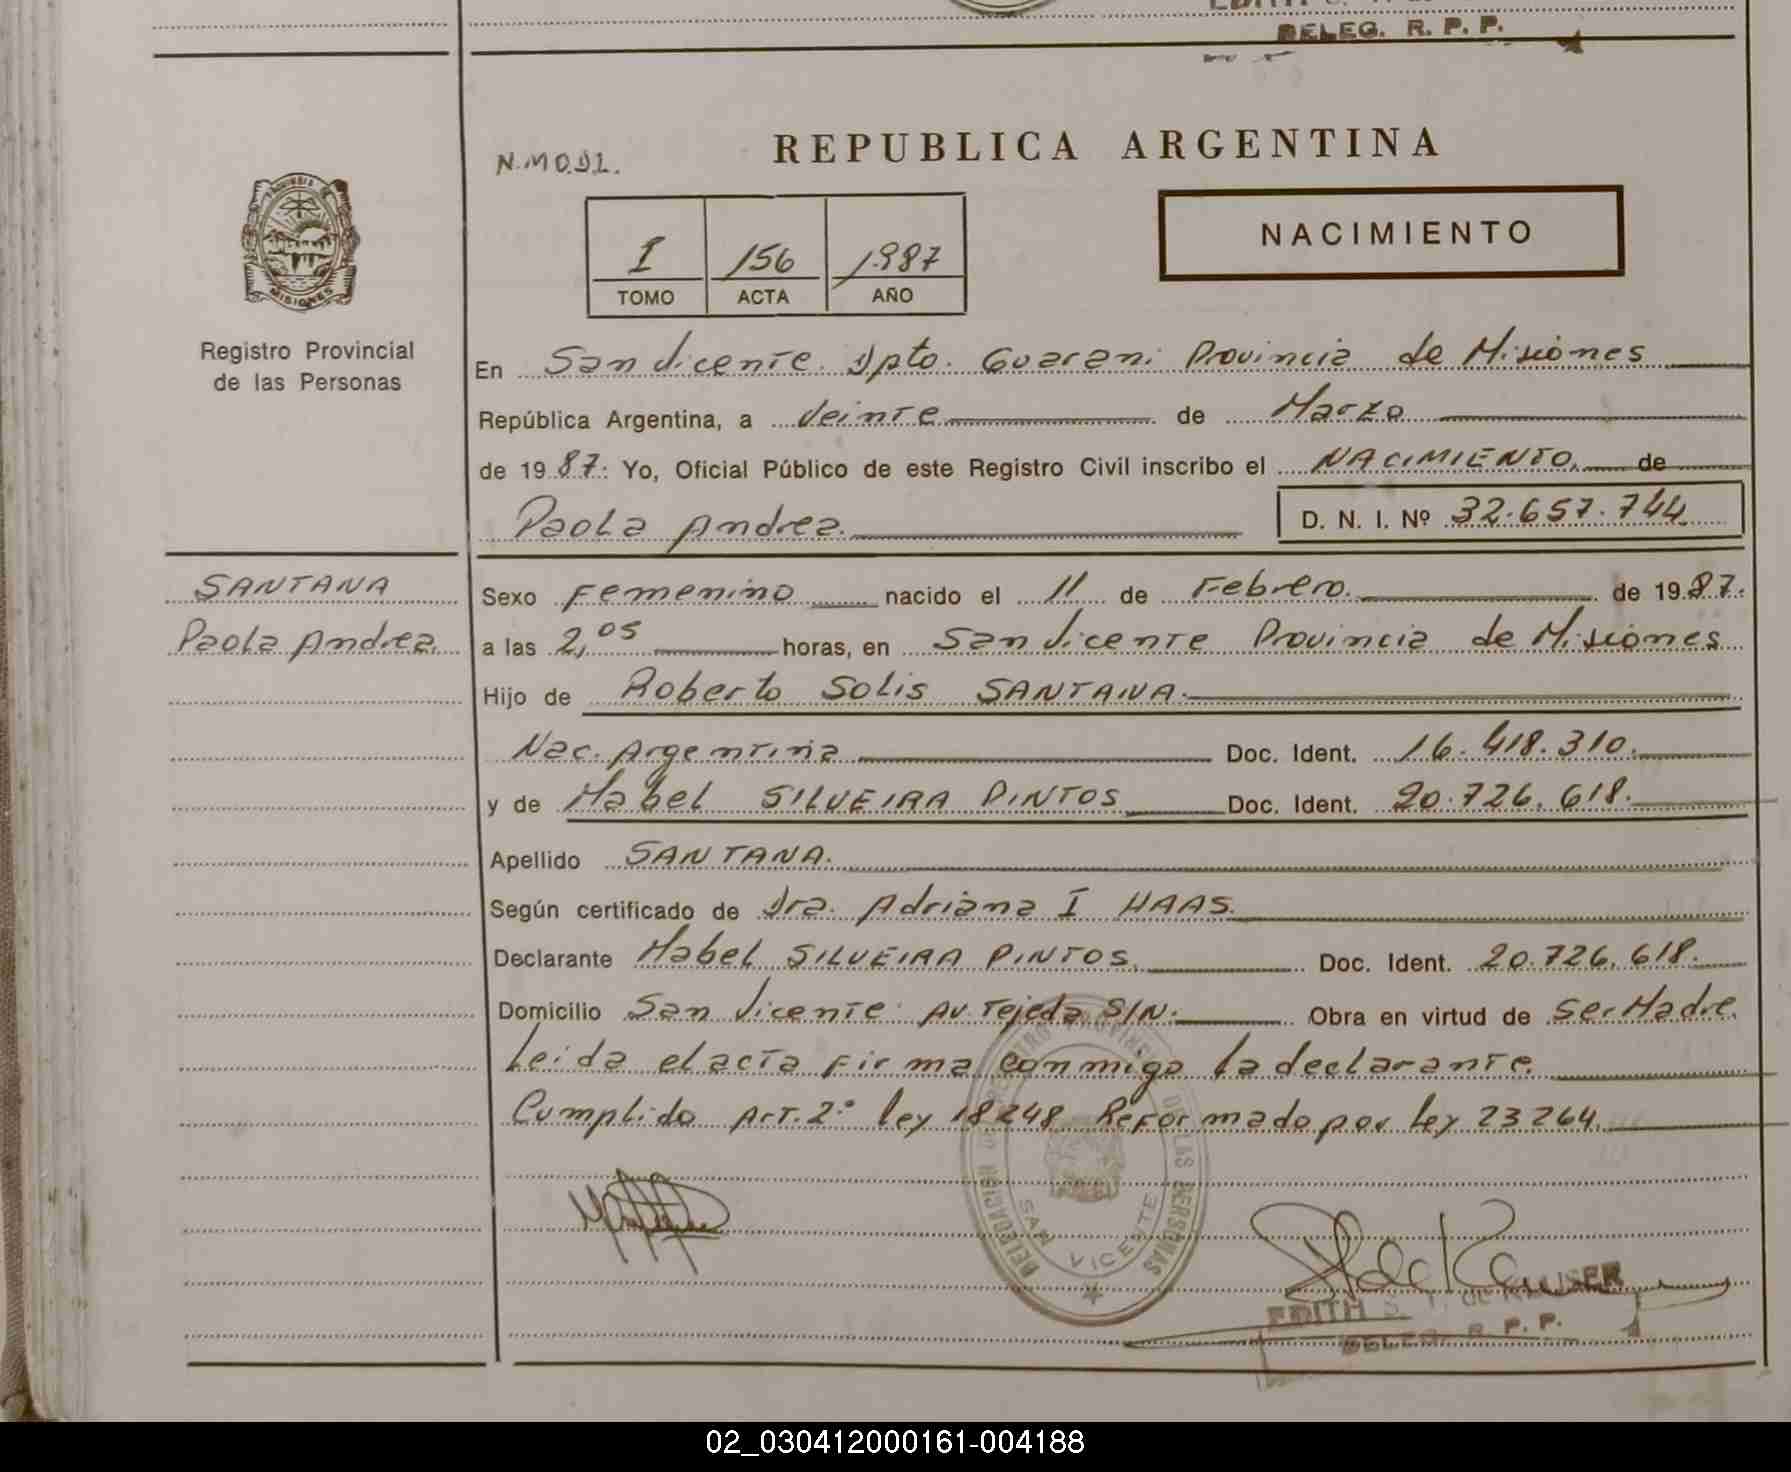 DELEG. R. P. P.
REPUBLICA ARGENTINA
NACIMIENTO
I 156 1987
TOMO ACTA AÑO
PROVINCIA DE
MISIONES
Registro Provincial
de las Personas
En San Vicente Dpto. Guarani Provincia de Misiones
República Argentina, a Veinte de Marzo
de 19 87. Yo, Oficial Público de este Registro Civil inscribo el NACIMIENTO. de
Paola Andrea. D. N. I. Nº 32.657.744
SANTANA
Paola Andrea.
Sexo Femenino nacido el 11 de Febrero. de 19 87.
a las 2,05 horas, en San Vicente Provincia de Misiones
Hijo de Roberto Solis SANTANA.
Nac. Argentina Doc. Ident. 16.418.310.
y de Mabel SILVEIRA PINTOS Doc. Ident. 20.726.618.
Apellido SANTANA.
Según certificado de Dra. Adriana I HAAS.
Declarante Mabel SILVEIRA PINTOS. Doc. Ident. 20.726.618.
Domicilio San Vicente Av. Tejeda S/N. Obra en virtud de Ser Madre.
Leida el acta Firma conmigo la declarante.
Cumplido Art. 2º Ley 18248 Reformado por Ley 23264.
DELEGACION
DE LAS PERSONAS
SAN VICENTE
EDITH S. T. de KAUSER
DELEG. R. P. P.
02_030412000161-004188